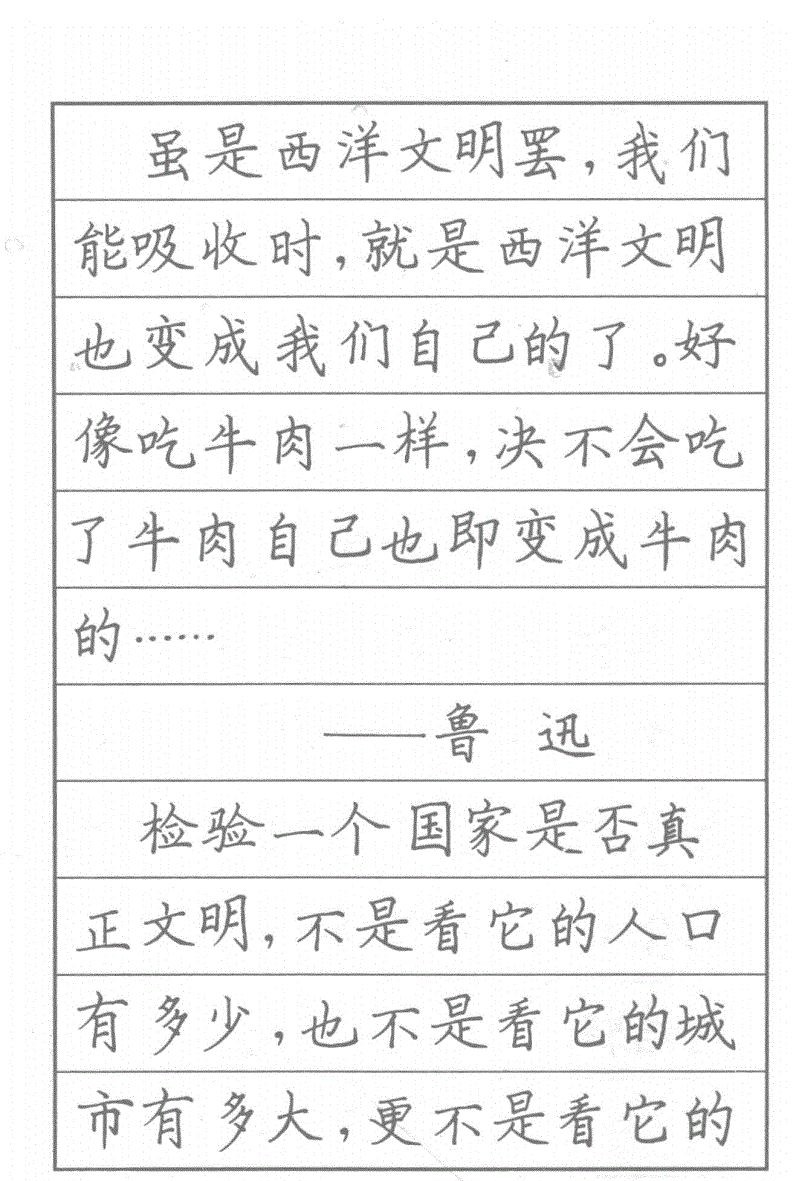 虽是西洋文明罢,我们
能吸收时,就是西洋文明
也变成我们自己的了。好
像吃牛肉一样,决不会吃
了牛肉自己也即变成牛肉
的……
——鲁 迅
检验一个国家是否真
正文明,不是看它的人口
有多少,也不是看它的城
市有多大,更不是看它的